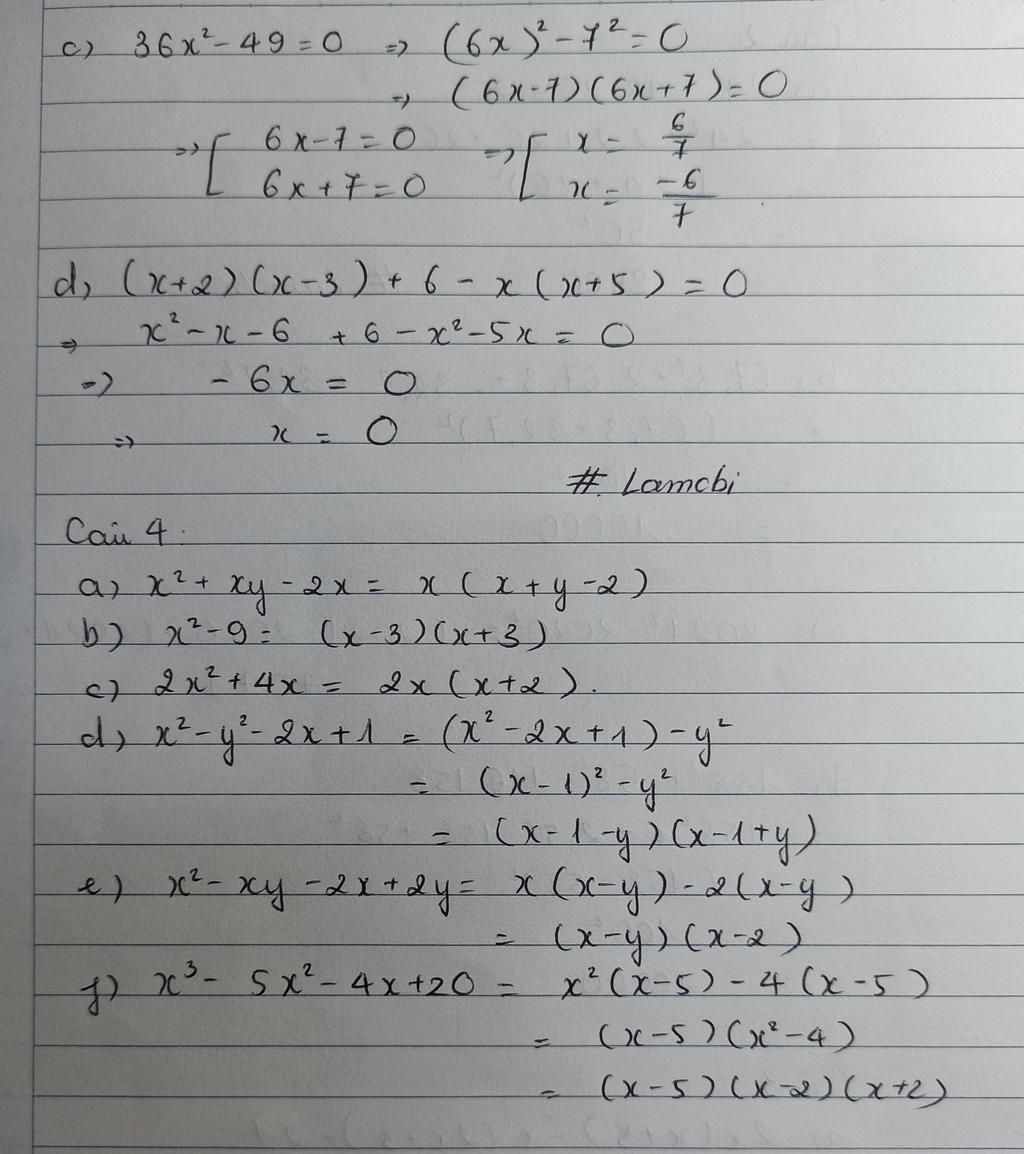 c) 36x² - 49 = 0 => (6x)² - 7² = 0
=> (6x-7)(6x+7) = 0
=> [ 6x - 7 = 0 => [ x = 6/7
6x + 7 = 0 x = -6/7
d) (x+2)(x-3) + 6 - x(x+5) = 0
=> x² - x - 6 + 6 - x² - 5x = 0
=> - 6x = 0
=> x = 0
#. Lamcbi
Câu 4:
a) x² + xy - 2x = x(x + y - 2)
b) x² - 9 = (x-3)(x+3)
c) 2x² + 4x = 2x(x+2).
d) x² - y² - 2x + 1 = (x² - 2x + 1) - y²
= (x - 1)² - y²
= (x - 1 - y)(x - 1 + y)
e) x² - xy - 2x + 2y = x(x-y) - 2(x-y)
= (x-y)(x-2)
f) x³ - 5x² - 4x + 20 = x²(x-5) - 4(x-5)
= (x-5)(x²-4)
= (x-5)(x-2)(x+2)